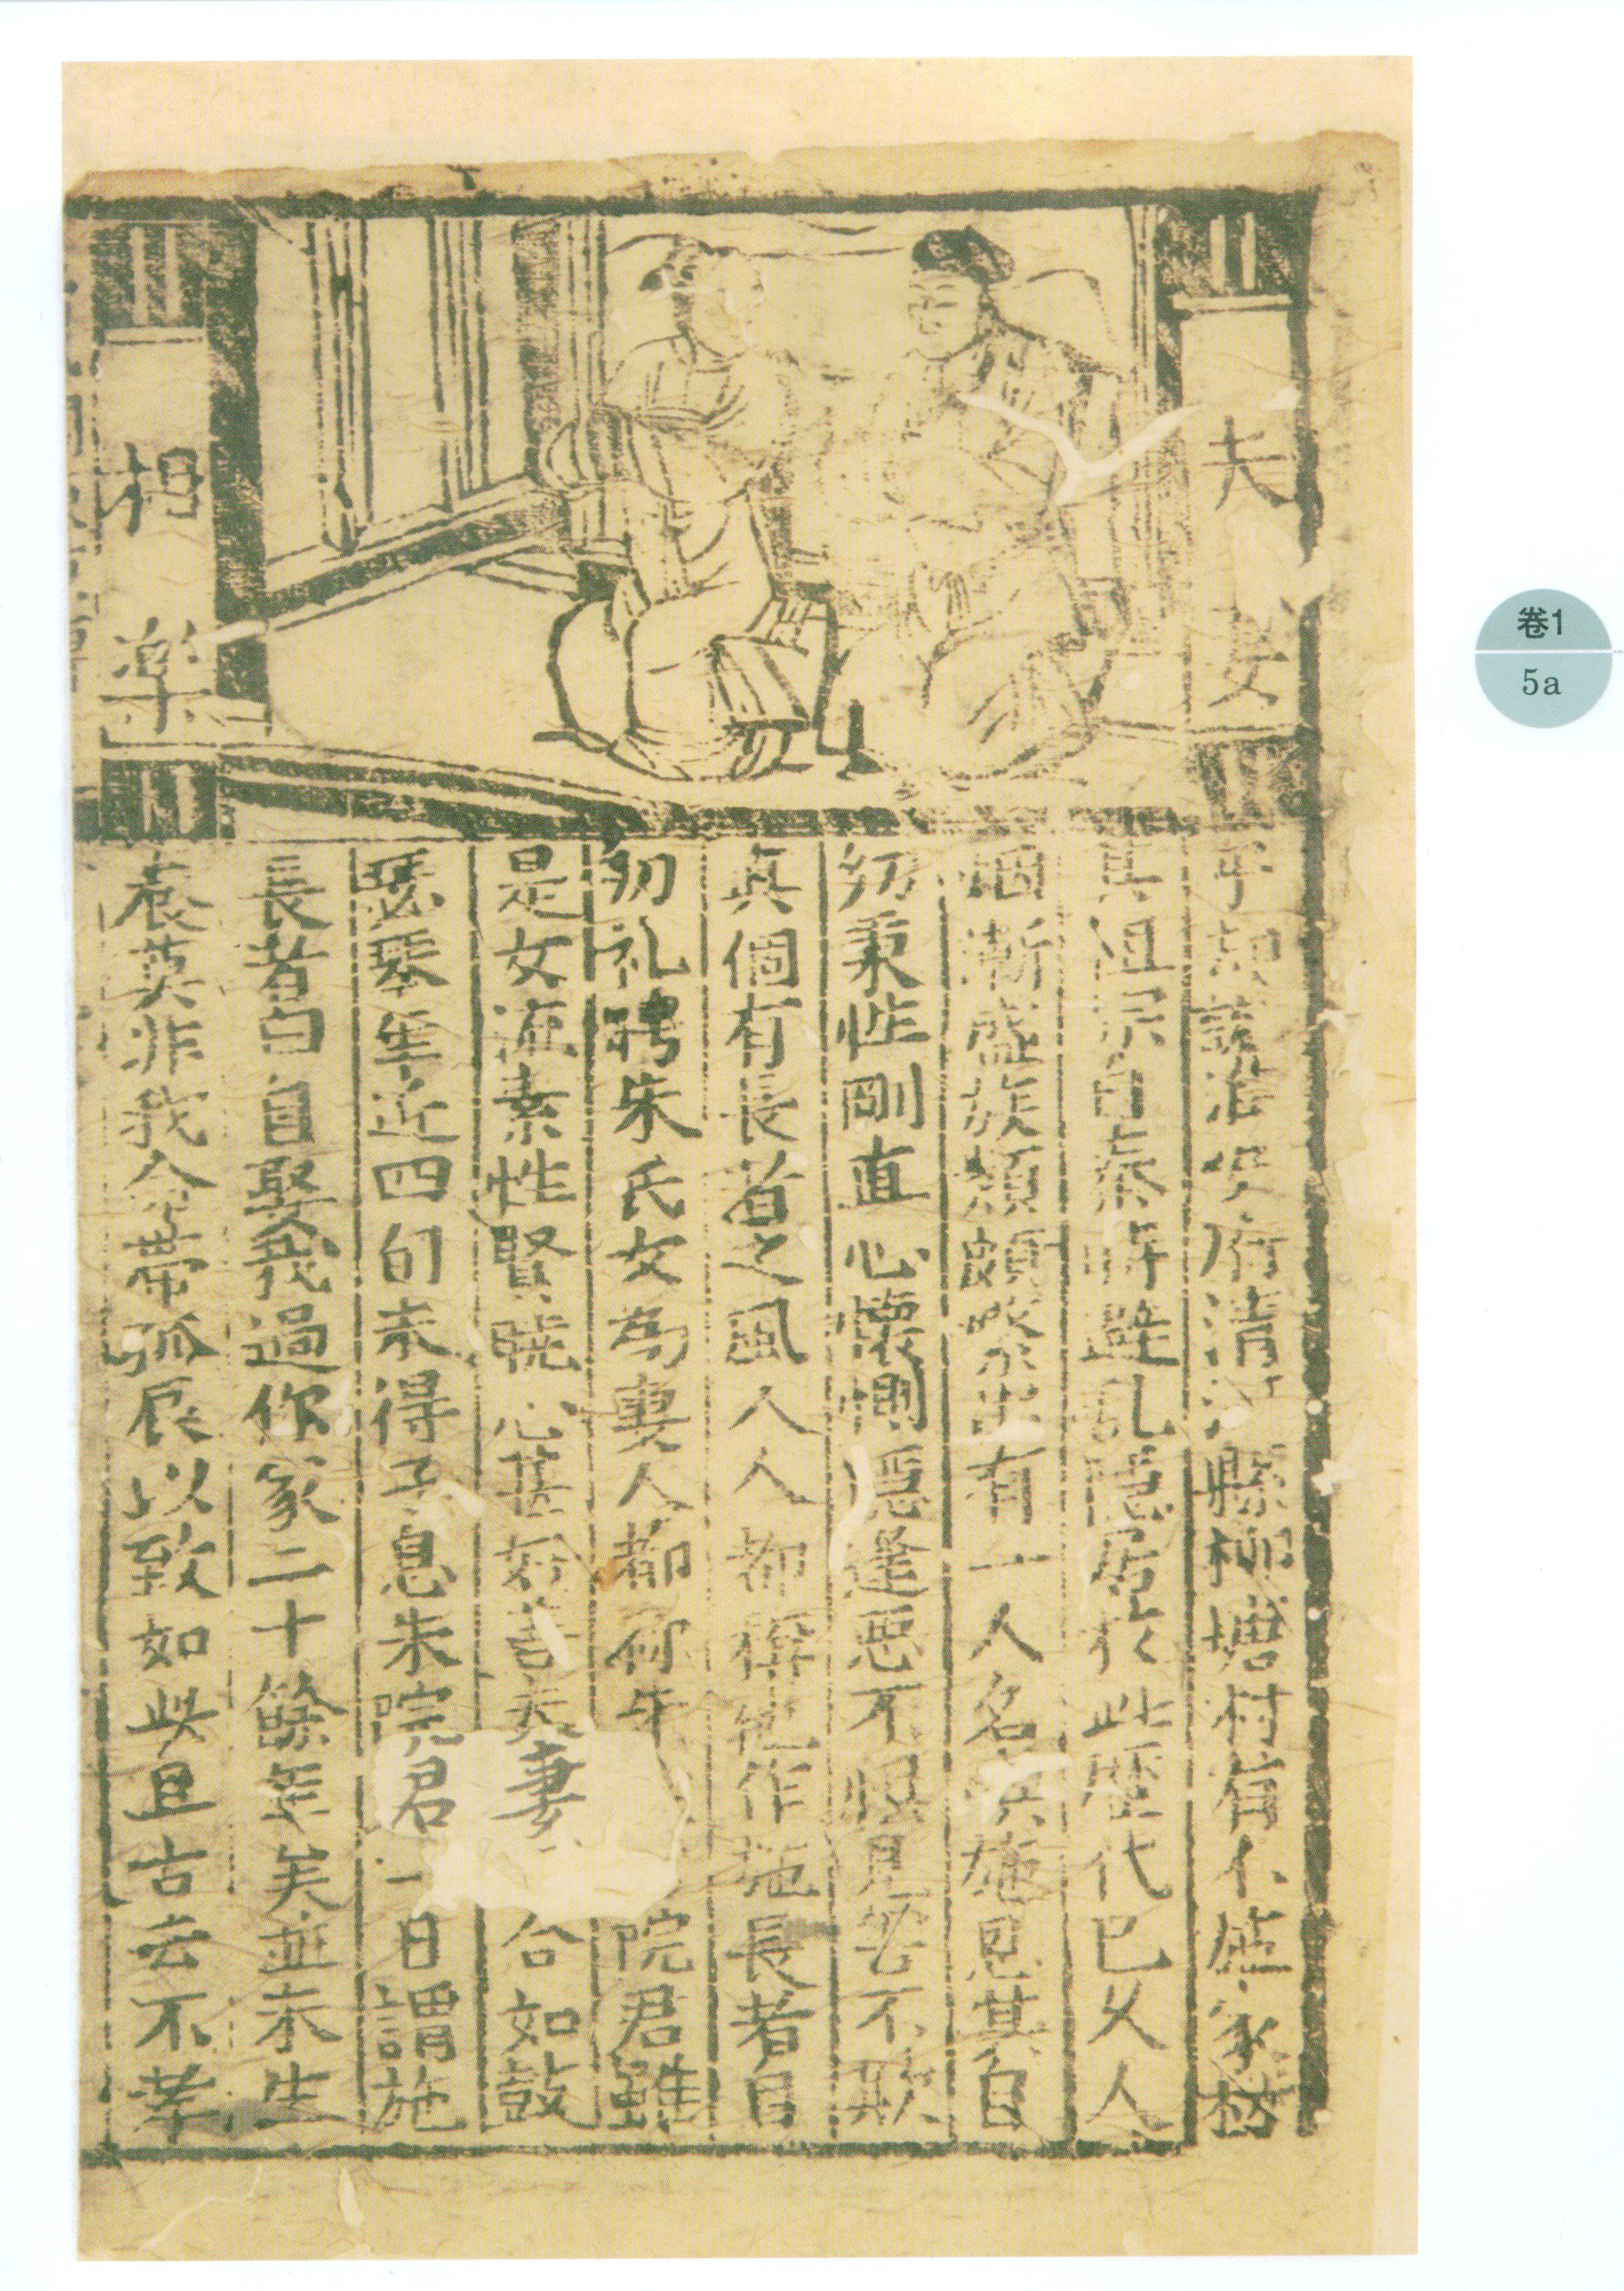 夫妻
相樂
却說淮安府清河縣柳塘村有个
其祖宗因秦時避乱居於此歷代已久人
烟漸盛族類有一人名施恩其自
幼秉性剛直心懷惻隱逢惡不怕見苦不欺
真個有長者之風人人都稱他作施長者自
幼礼聘朱氏女為妻人都称 院君雖
是女流素性賢晥心慈好善夫妻合如鼓
瑟琴年近四旬未得子息朱院君一日謂施
長者曰自娶我過你家二十餘年矣並未生
養莫非我命帶孤辰以致如此且古云不孝
卷1
5a